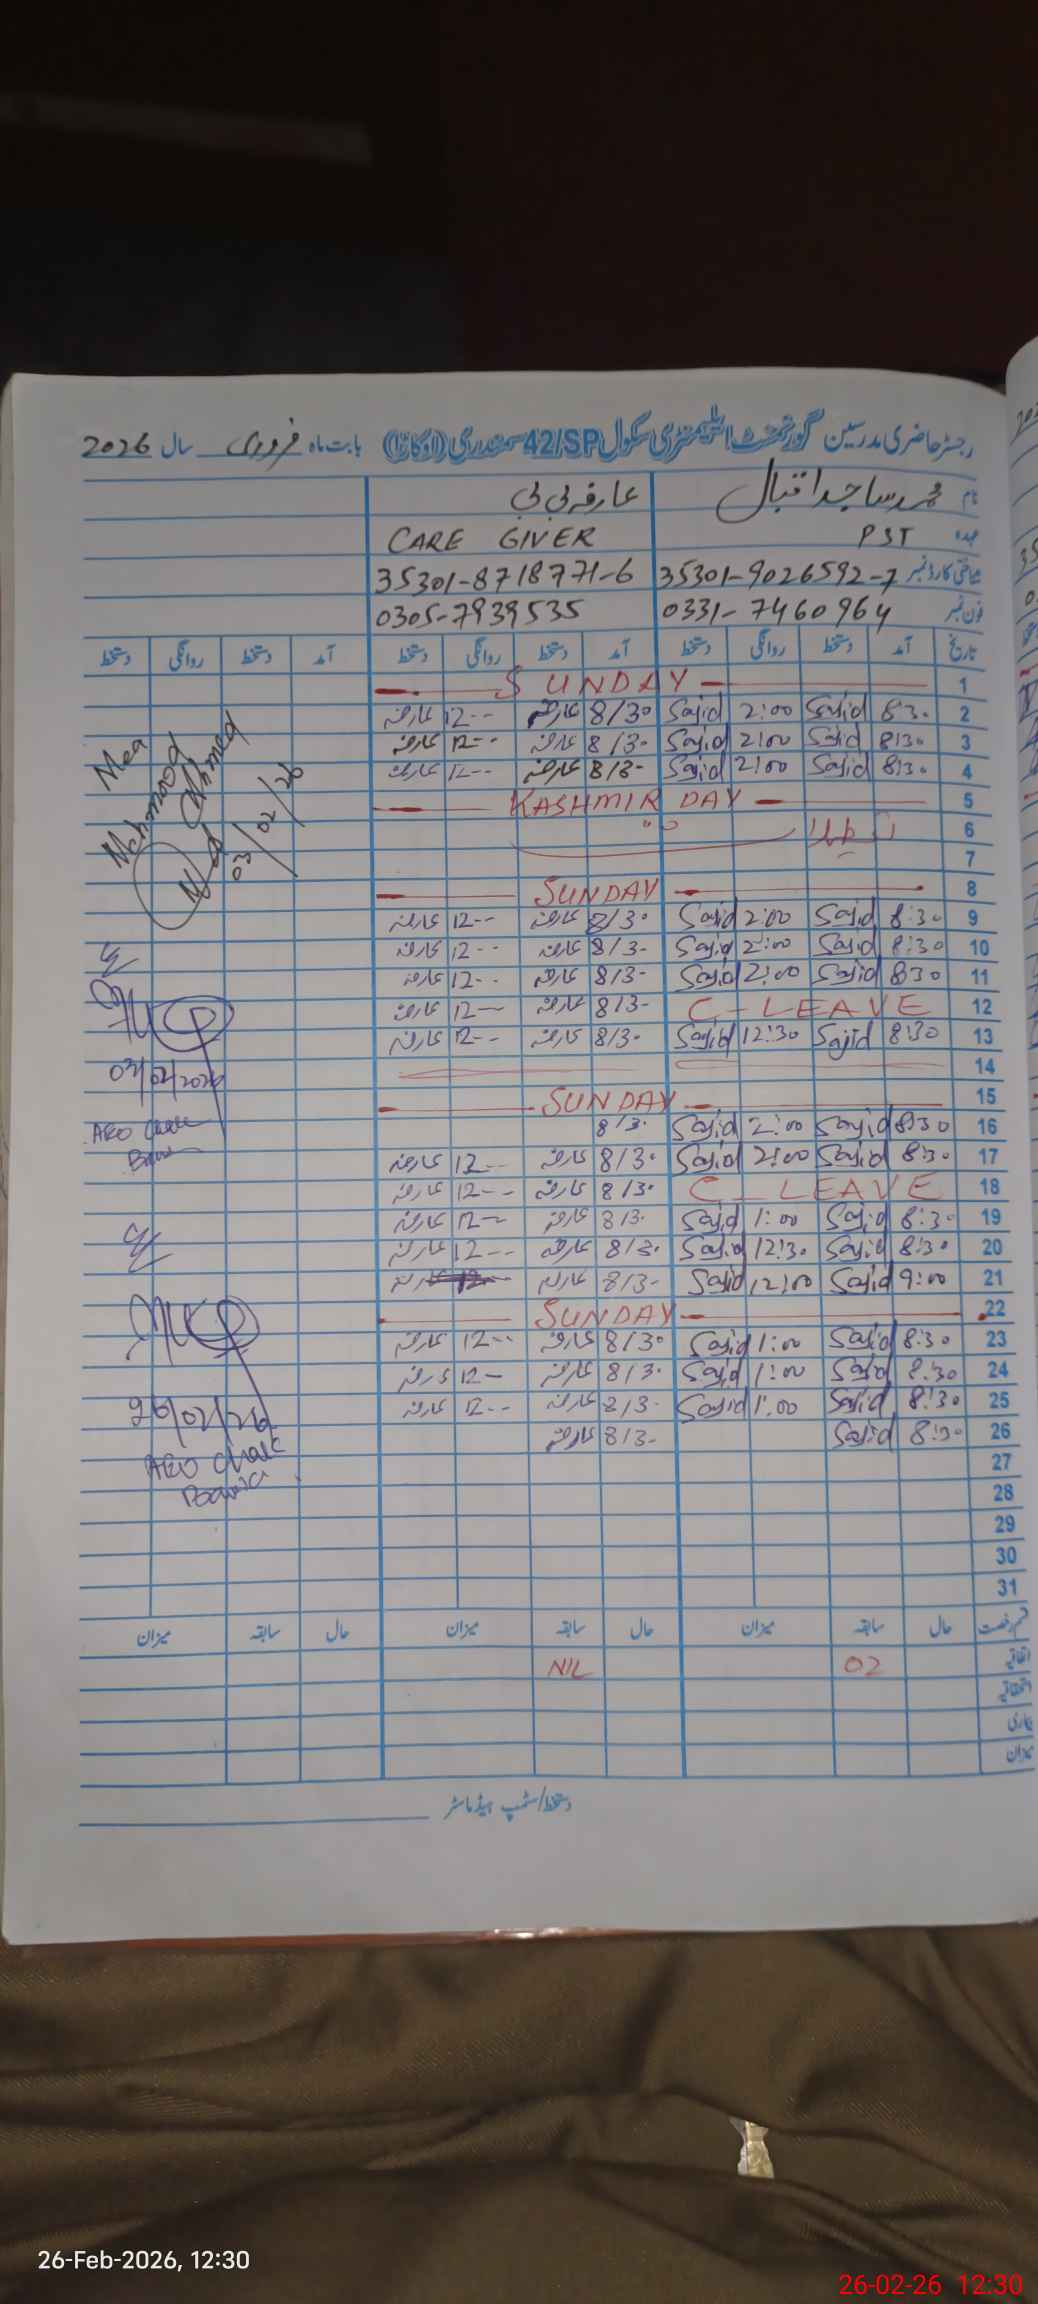 رجسٹر حاضری مدرسین گورنمنٹ ایلیمنٹری سکول 42/SP سمندری (اوکاڑا) بابت ماہ فروری سال 2026
نام محمد ساجد اقبال عارفہ بی بی
عہدہ PST CARE GIVER
شناختی کارڈ نمبر 35301-9026592-7 35301-8718771-6
فون نمبر 0331-7460964 0305-7939535
تاریخ آمد دستخط روانگی دستخط آمد دستخط روانگی دستخط آمد دستخط روانگی دستخط
1 SUNDAY
2 8:30 Sajid 2:00 Sajid 8/30 عارفہ 12-- عارفہ
3 8:30 Sajid 2:00 Sajid 8/30 عارفہ 12-- عارفہ
4 8:30 Sajid 2:00 Sajid 8/3- عارفہ 12-- عارفہ
5 KASHMIR DAY
6
7
8 SUNDAY
9 8:30 Sajid 2:00 Sajid 8/30 عارفہ 12-- عارفہ
10 8:30 Sajid 2:00 Sajid 8/3- عارفہ 12-- عارفہ
11 8:30 Sajid 2:00 Sajid 8/3- عارفہ 12-- عارفہ
12 C-LEAVE 8/3- عارفہ 12-- عارفہ
13 8:30 Sajid 12:30 Sajid 8/3- عارفہ 12-- عارفہ
14
15 SUNDAY
16 8:30 Sajid 2:00 Sajid 8/3-
17 8:30 Sajid 2:00 Sajid 8/30 عارفہ 12-- عارفہ
18 C-LEAVE 8/30 عارفہ 12-- عارفہ
19 8:30 Sajid 1:00 Sajid 8/3- عارفہ 12-- عارفہ
20 8:30 Sajid 12:30 Sajid 8/3- عارفہ 12-- عارفہ
21 9:00 Sajid 12:00 Sajid 8/3- عارفہ
22 SUNDAY
23 8:30 Sajid 1:00 Sajid 8/30 عارفہ 12-- عارفہ
24 8:30 Sajid 1:00 Sajid 8/3- عارفہ 12- عارفہ
25 8:30 Sajid 1:00 Sajid 8/3- عارفہ 12-- عارفہ
26 8:30 Sajid 8/3- عارفہ
27
28
29
30
31
Mea
Mehmood Ahmed
03/02/26
03/02/2026
AEO Chak
26/02/26
AEO Chak
قسم رخصت حال سابقہ میزان حال سابقہ میزان حال سابقہ میزان
اتفاقیہ 02 NIL
استحقاقیہ
بیماری
میزان
دستخط/سٹمپ ہیڈماسٹر
26-Feb-2026, 12:30
26-02-26 12:30